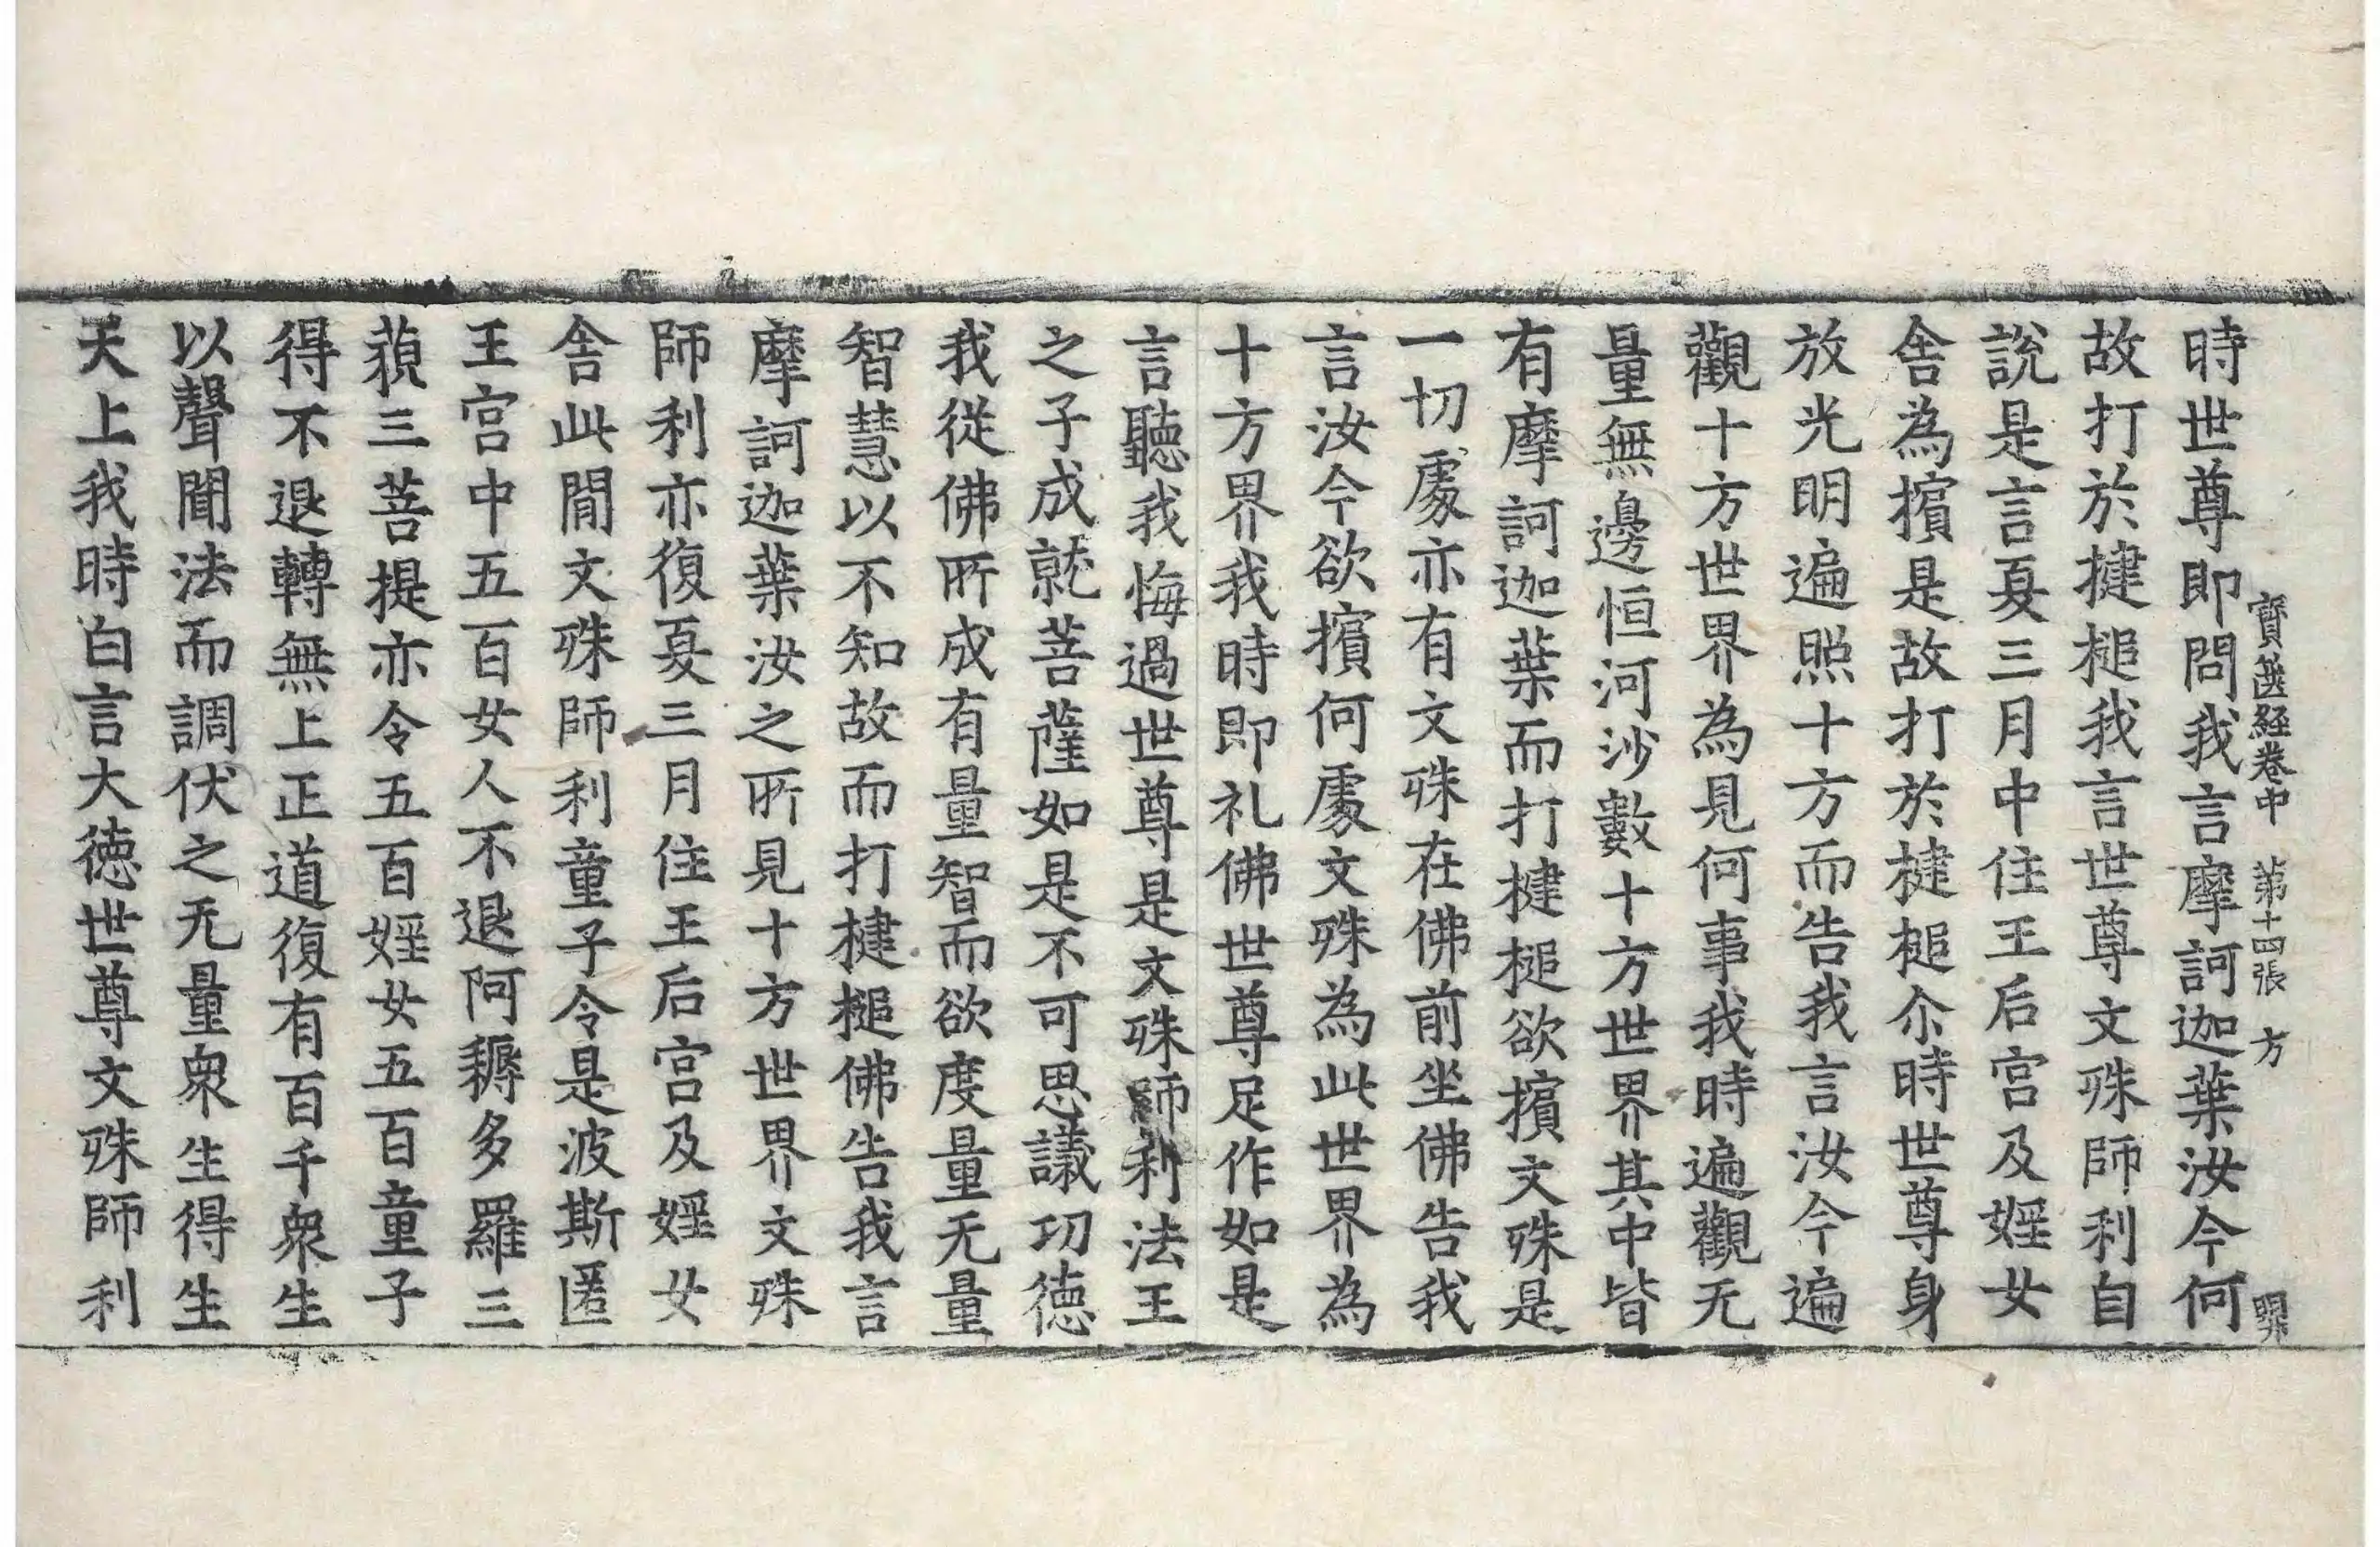 寶篋經卷中　第十四張　方
時世尊即問我言摩訶迦葉汝今何
故打於揵槌我言世尊文殊師利自
說是言夏三月中住王后宮及婬女
舍為擯是故打於揵槌尒時世尊身
放光明遍照十方而告我言汝今遍
觀十方世界為見何事我時遍觀无
量無邊恒河沙數十方世界其中皆
有摩訶迦葉而打揵槌欲擯文殊是
一切處亦有文殊在佛前坐佛告我
言汝今欲擯何處文殊為此世界為
十方界我時即礼佛世尊足作如是
言聽我悔過世尊是文殊師利法王
之子成就菩薩如是不可思議功徳
我從佛所成有量智而欲度量无量
智慧以不知故而打揵槌佛告我言
摩訶迦葉汝之所見十方世界文殊
師利亦復夏三月住王后宮及婬女
舍此間文殊師利童子令是波斯匿
王宮中五百女人不退阿耨多羅三
藐三菩提亦令五百婬女五百童子
得不退轉無上正道復有百千衆生
以聲聞法而調伏之无量衆生得生
天上我時白言大徳世尊文殊師利